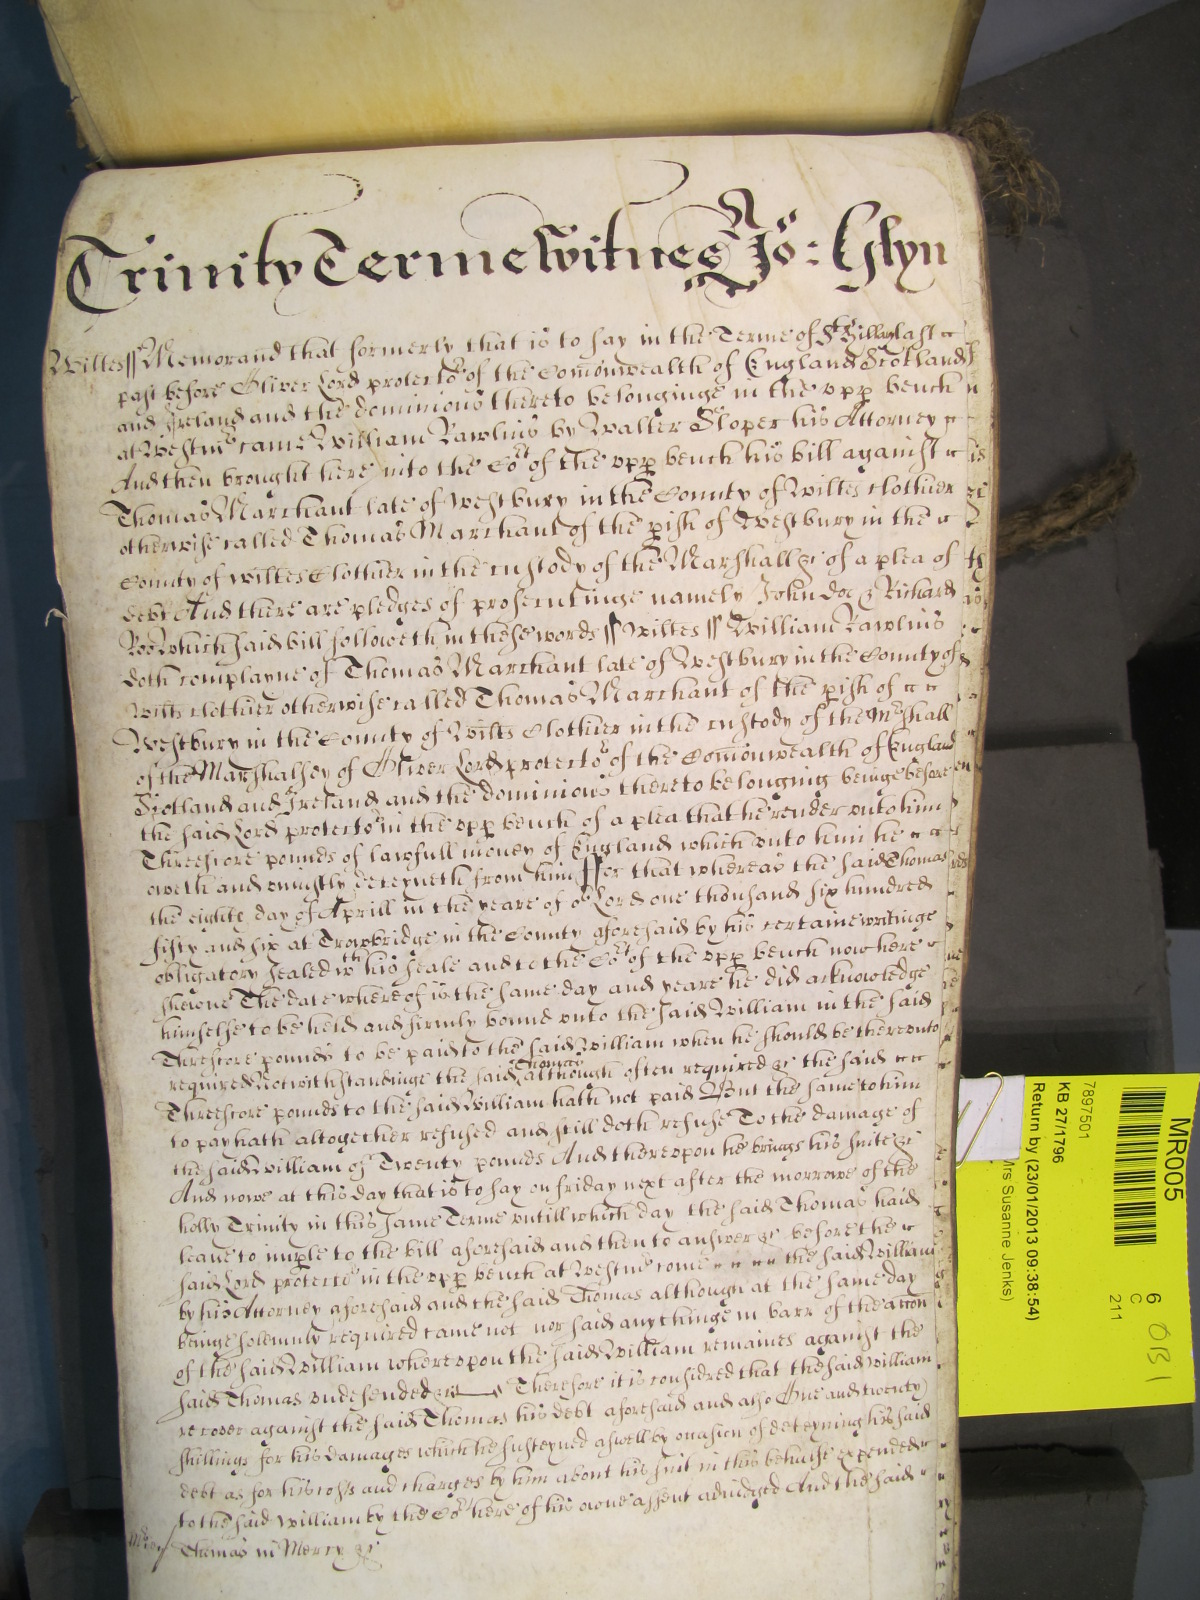 Trinity Terme Witnes Jo: Glyn
Wiltes ss Memorand that formerly that is to say in the Terme of St Hillary last
past before Oliver Lord protector of the Comonwealth of England Scotland
and Ireland and the dominions thereto belonginge in the upp bench
at Westmr came William Rawlins by Walter Sloper his Attorney
And then brought here into the Cort of the upp bench his bill against
Thomas Marchant late of Westbury in the County of Wiltes clothier
otherwise called Thomas Marchant of the pish of Westbury in the
County of Wiltes Clothier in the custody of the Marshall &c of a plea of
debt And there are pledges of prosecutinge namely John Doe & Richard
Roe Which said bill followeth in these words ss Wiltes ss William Rawlins
doth complayne of Thomas Marchant late of Westbury in the County of
Wilts clothier otherwise called Thomas Marchant of the pish of
Westbury in the County of Wilts Clothier in the custody of the Mrshall
of the Marshalsey of Oliver Lord protector of the Comonwealth of England
Scotland and Ireland and the dominions thereto belonging beinge before
the said Lord protector in the upp bench of a plea that he render unto him
Threescore pounds of lawfull money of England which unto him he
oweth and uniustly deteyneth from him ffor that whereas the said Thomas
the eighte day of Aprill in the yeare of or Lord one thousand six hundred
fifty and six at Trowbridge in the County aforesaid by his certaine writinge
obligatory sealed wth his seale and to the Cort of the upp bench now here
shewne The date whereof is the same day and yeare he did acknowledge
himselfe to be held and firmly bound unto the said William in the said
Threescore pounds to be paid to the said William when he should be thereunto
required Notwithstandinge the said Thomas although often required &c the said
Threescore pounds to the said William hath not paid But the same to him
to pay hath altogether refused and still doth refuse To the damage of
the said William of Twenty pounds And thereupon he brings his suite &c
And nowe at this day that is to say on friday next after the morrowe of the
holly Trinity in this same Terme untill which day the said Thomas had
leave to imple to the bill aforesaid and then to answer &c before the
said Lord protector in the upp bench at Westmr come the said William
by his Attorney aforesaid and the said Thomas although at the same day
beinge solemnly required came not nor said any thinge in barr of the accon
of the said William whereupon the said William remaines against the
said Thomas undefended &c Therefore it is considred that the said William
recover against the said Thomas his debt aforesaid and also One and twenty
shillings for his damages which he susteyned aswell by occasion of deteyning his said
debt as for his costs and charges by him about his suit in this behalfe expended
to the said William by the Cort here of his owne assent adiudged And the said
Thomas in Mercy &c
MR005
6
C
211
OB 1
7897501
KB 27/1796
Return by (23/01/2013 09:38:54)
Mrs Susanne Jenks)